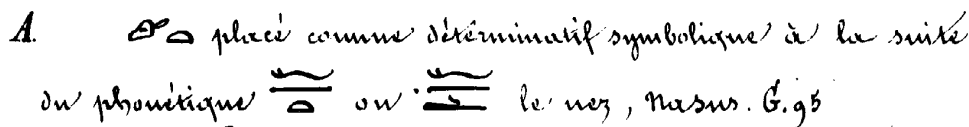 A. placé comme déterminatif symbolique à la suite
du phonétique ou le nez, nasus. G. 95